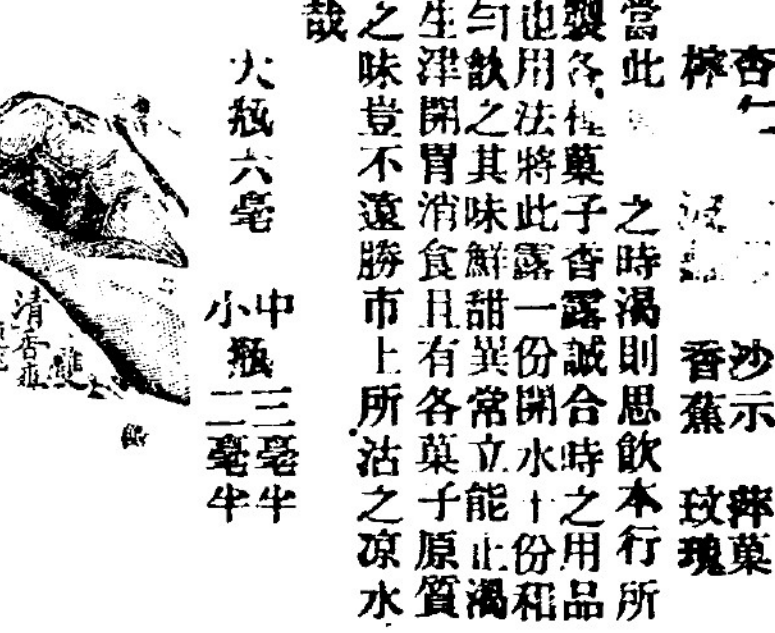 杏仁 沙示 菓
香蕉 玫瑰
當此 之時渴則思飲本行所
製各種菓子香露誠合時之用品
也用法將此露一份開水十份和
勻飲之其味鮮甜異常立能止渴
生津開胃消食且有各菓子原質
之味豈不遠勝市上所沽之凉水
哉
大瓶六毫 中小瓶 三毫半
二毫半
清香
雙